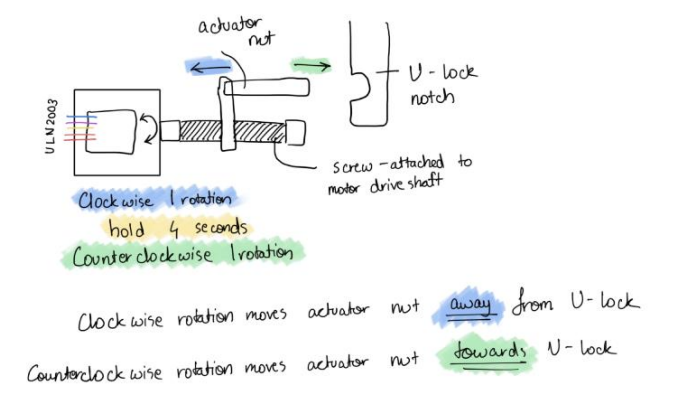 actuator
nut
U-lock
notch
ULN2003
screw - attached to
motor drive shaft
Clockwise 1 rotation
hold 4 seconds
Counterclockwise 1 rotation
Clockwise rotation moves actuator nut away from U-lock
Counterclockwise rotation moves actuator nut towards U-lock